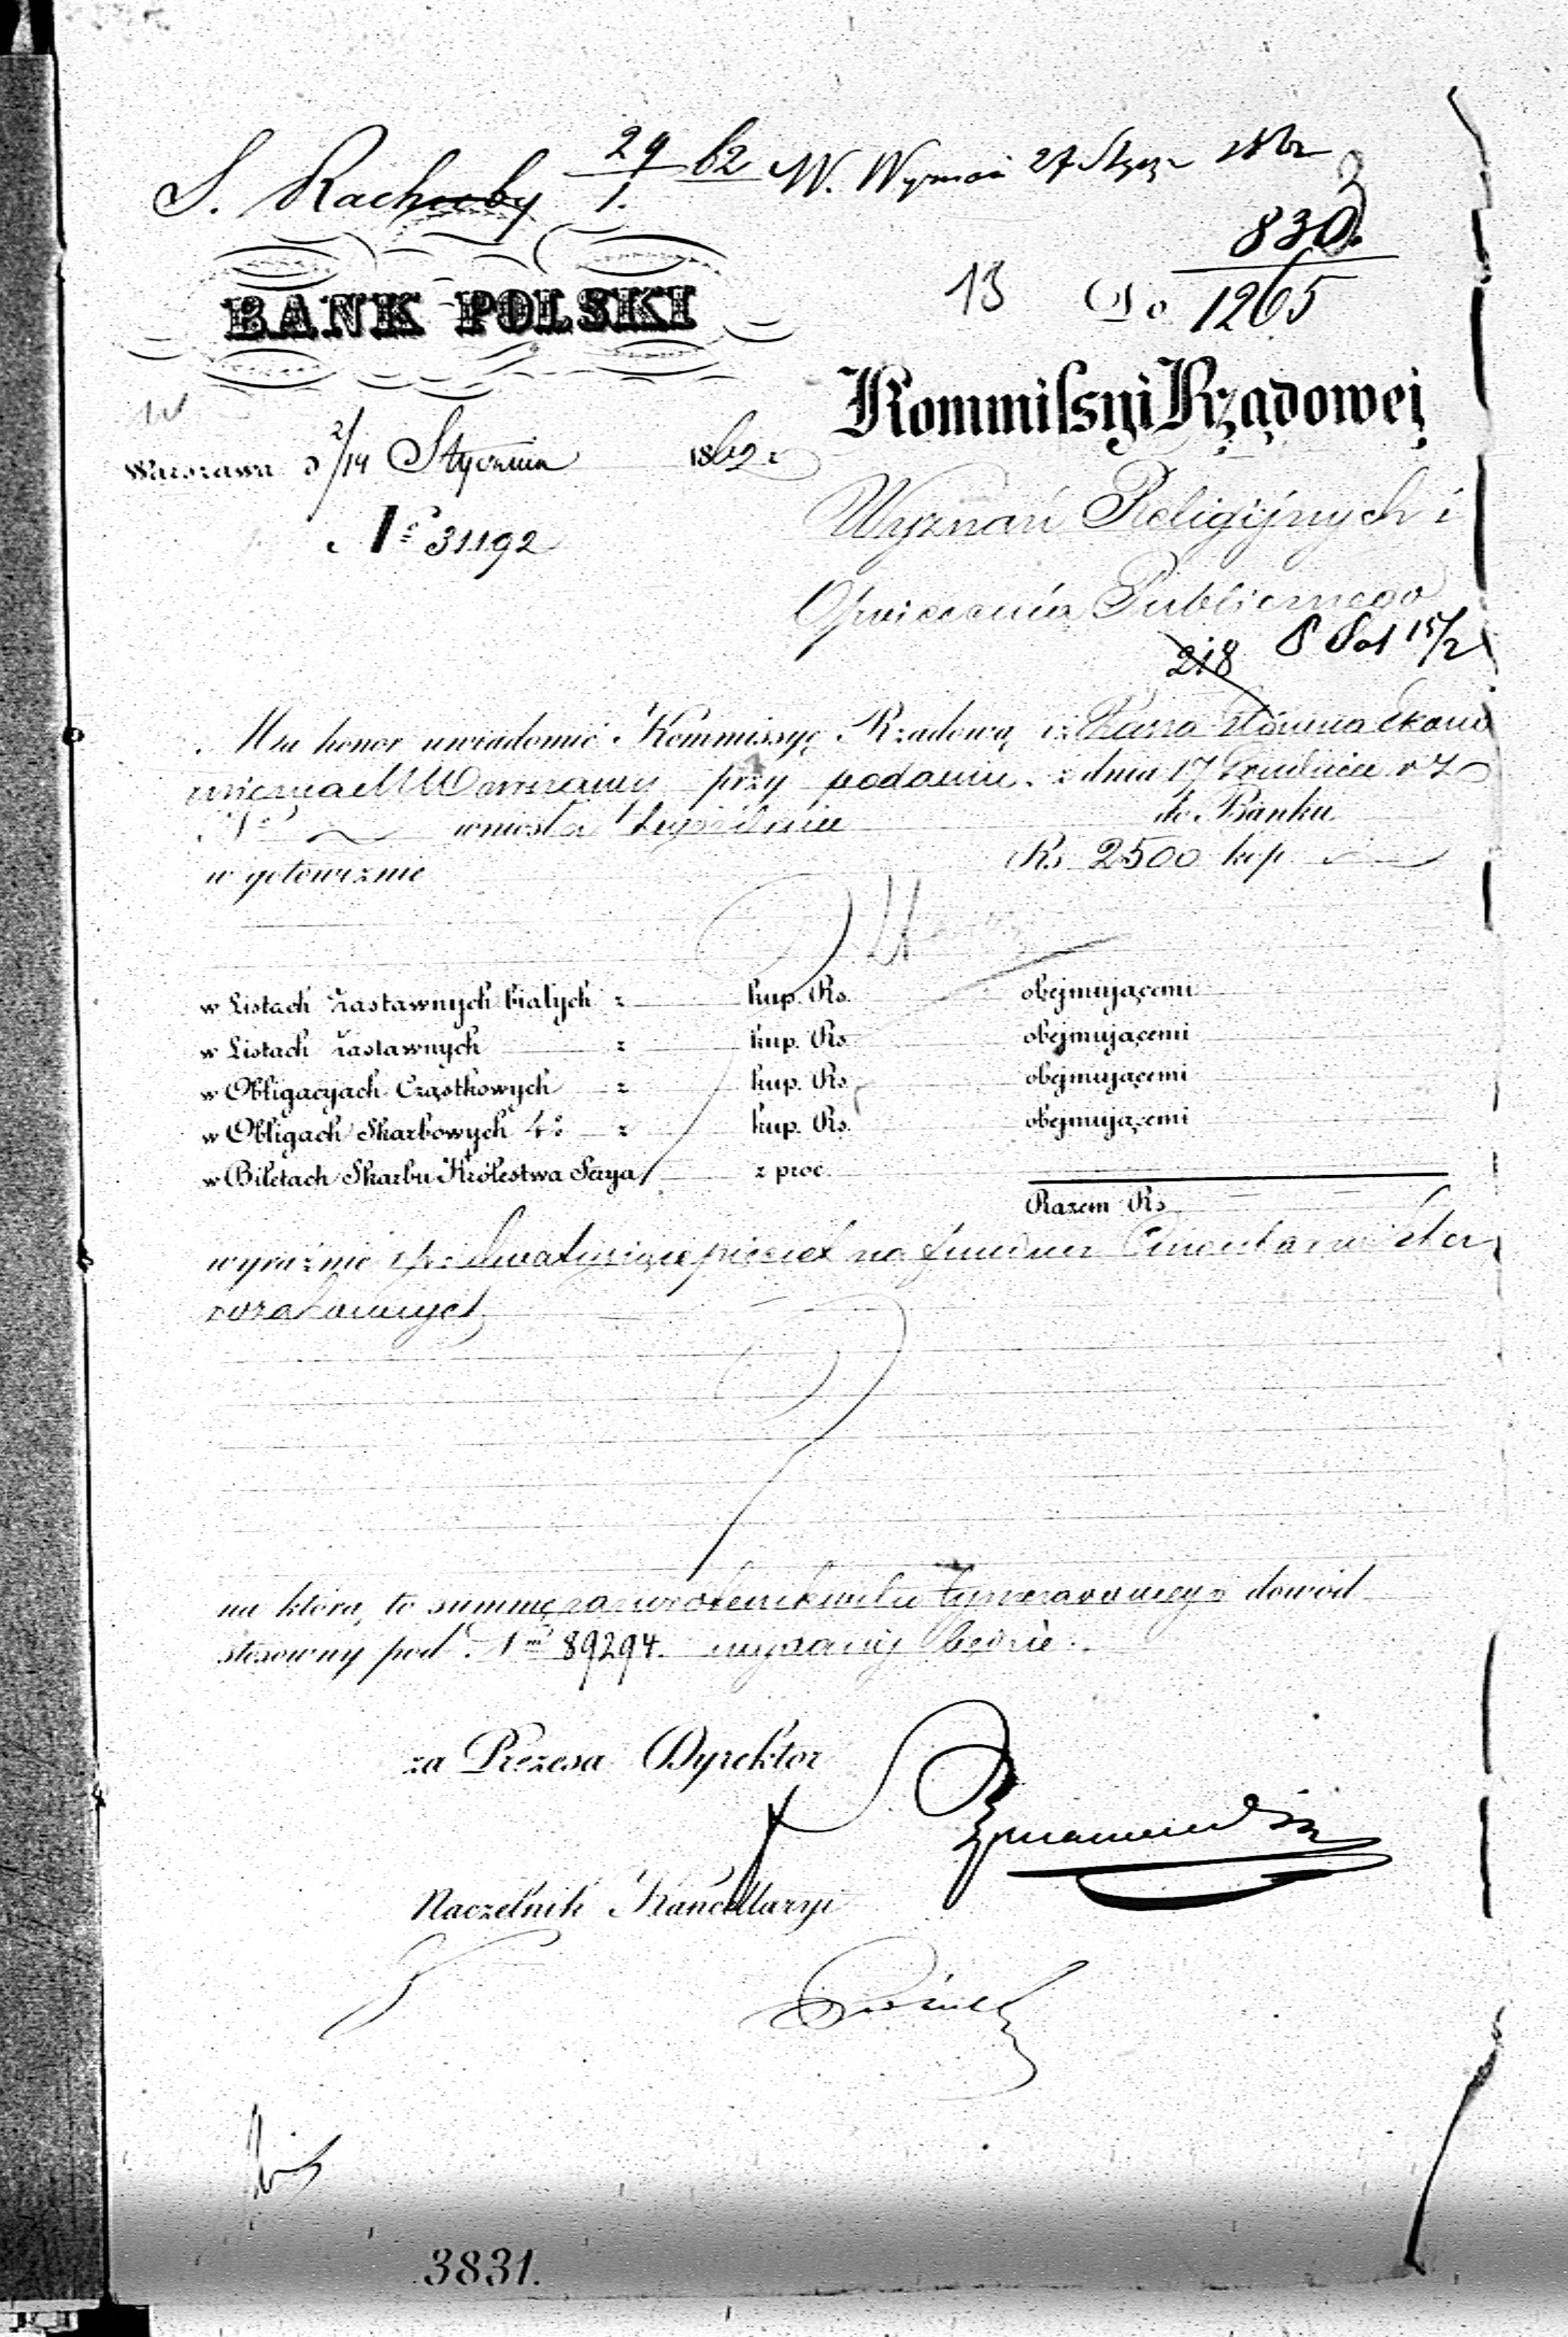 S. Rachuby 29/1. 62 W. Wyznań 27 Stycz 1862
830.
13 Do 1265
BANK POLSKI
Kommissyi Rządowej
Warszawa d 2/14 Stycznia 1862 r
Wyznań Religijnych i
Nº 31192
Oświecenia Publicznego
218 15/2
Ma honor uwiadomić Kommissyę Rządową iż
przy podaniu z dnia 17 Grudnia r z
Nº wniosła do Banku
w gotowiznie Rs. 2500 kop.
w Listach Zastawnych białych z kup. Rs. obejmującemi
w Listach Zastawnych z kup. Rs. obejmującemi
w Obligacyjach Cząstkowych z kup. Rs. obejmującemi
w Obligach Skarbowych 4% z kup. Rs. obejmującemi
w Biletach Skarbu Królestwa Serya z proc.
Razem Rs
wyraźnie rs. dwa tysiące pięćset na fundusz
na którą to summę za zwrotem kwitu tymczasowego dowód
stosowny pod Nm 89294. wydany będzie.
za Prezesa Dyrektor
Naczelnik Kancellaryi
3831.